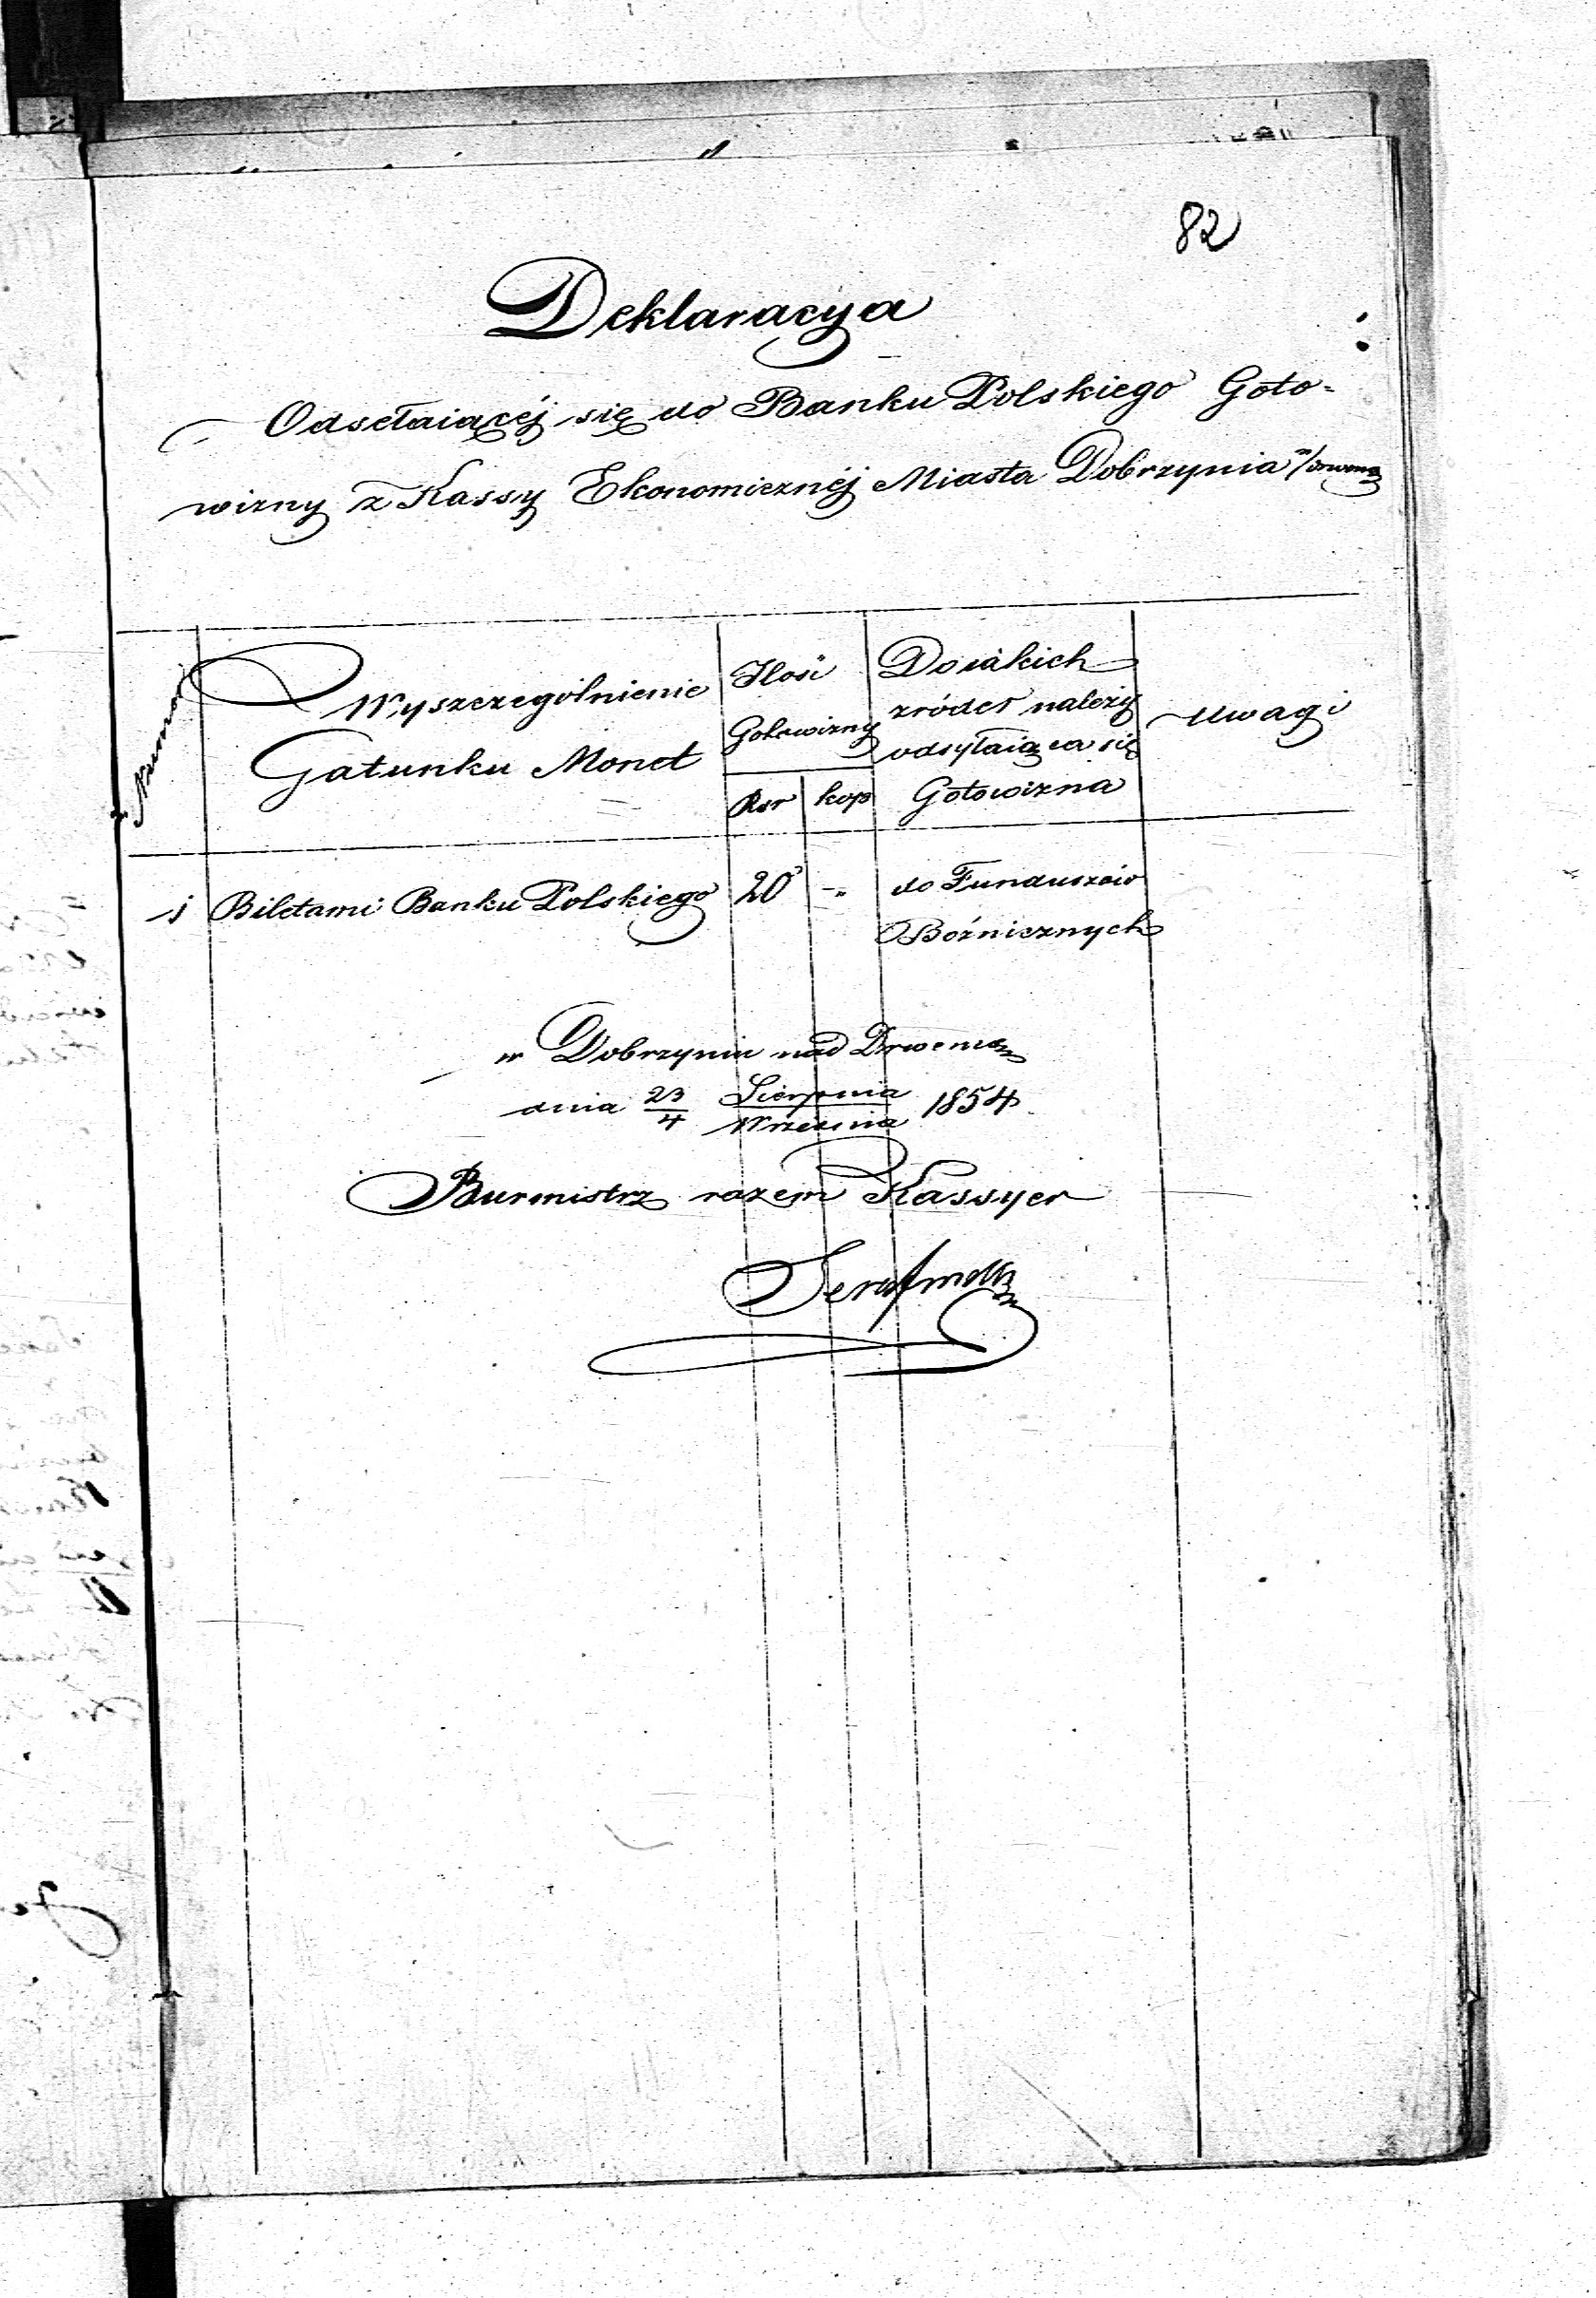 82
Deklaracya
Odsełaiącéj się do Banku Polskiego Goto-
wizny z Kassy Ekonomicznéj Miasta Dobrzynia n/Drwencą
Numer
Wyszczególnienie
Gatunku Monet
Ilość
Gotowizny
Rsr kop
Do iakich
zródeł należy
odsyłaiąca się
Gotowizna
Uwagi
1 Biletami Banku Polskiego 20 - „ do Funduszów
Bożnicznych
w Dobrzyniu nad Drwencą
dnia 23/4 Sierpnia/Września 1854
Burmistrz razem Kassyer